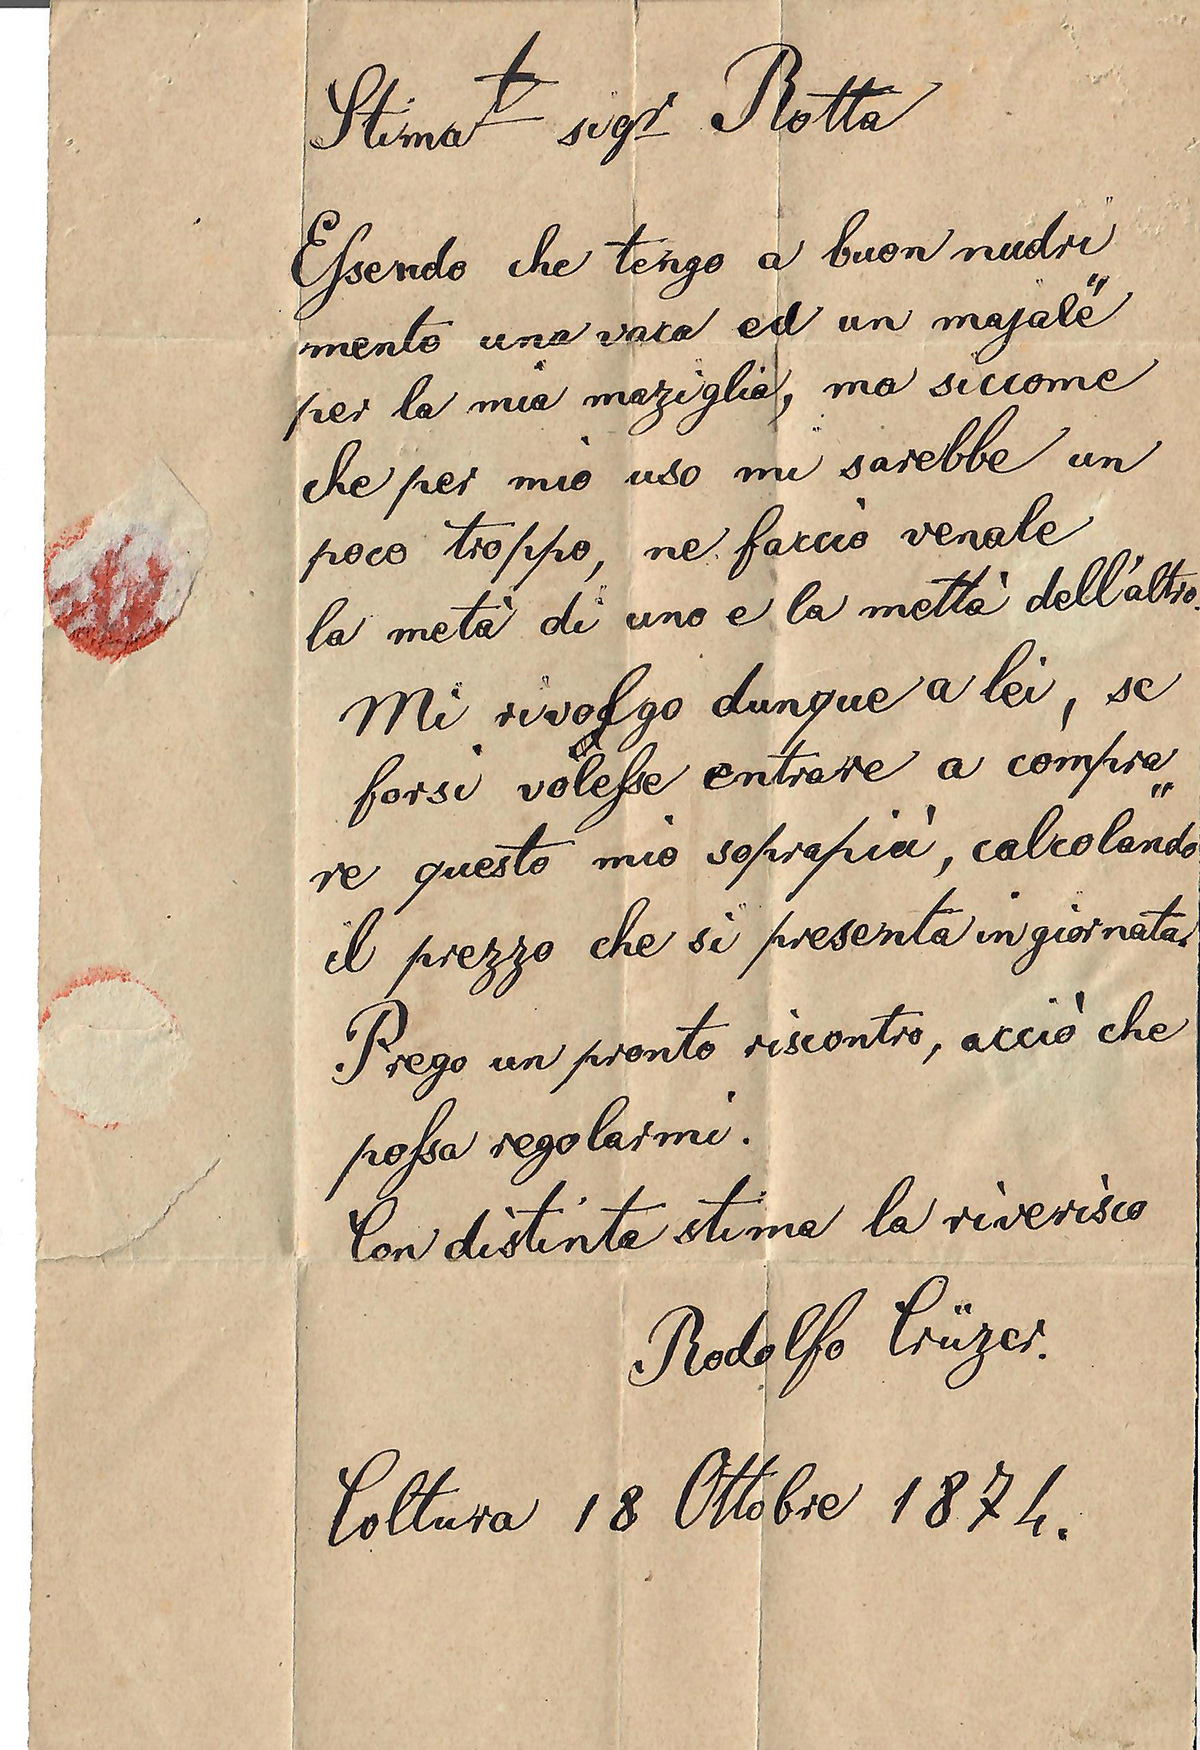 Stimat sigr Rotta
Essendo che tengo a buon nudri
mento una vaca ed un majale"
per la mia maziglia, ma siccome
che per mio uso mi sarebbe un
poco troppo, ne faccio venale
la metà di uno e la mettà dell'altro.
Mi rivolgo dunque a lei, se
forsi volesse entrare a compra"
re questo mio soprapiù, calcolando
il prezzo che si presenta in giornata.
Prego un pronto riscontro, acciò che
possa regolarmi.
Con distinta stima la riverisco
Rodolfo Crüzer.
Coltura 18 Ottobre 1874.